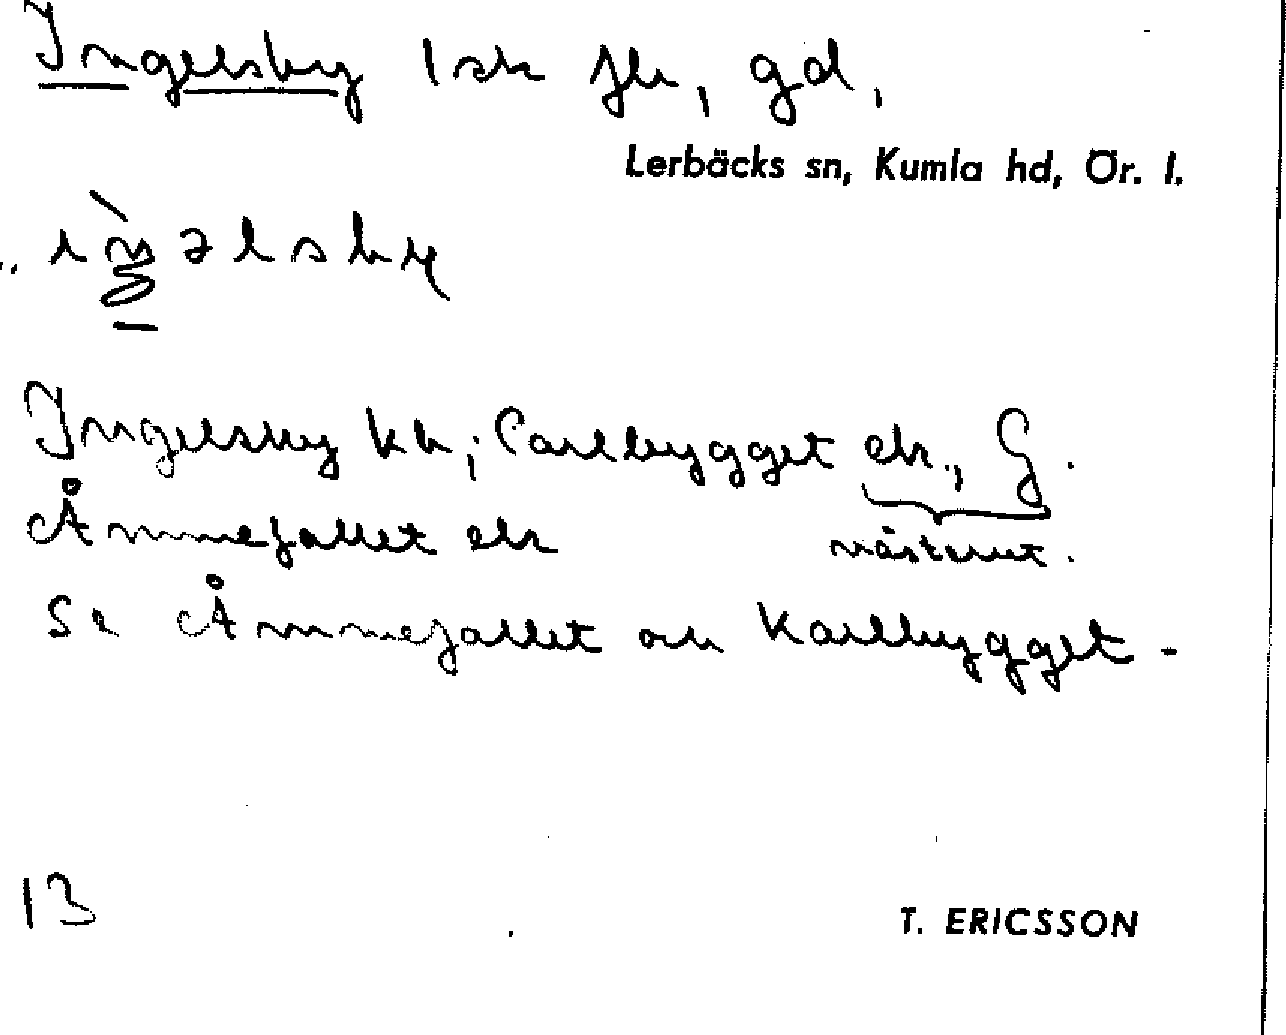 Ingelsby 1 sk fln, gd,
Lerbäcks sn, Kumla hd, Ör. l.
Ingelsby kk; Carlbygget ek., G.
Åmmefallet ek
västerut.
Se Åmmefallet och Karlbygget -
13
T. ERICSSON